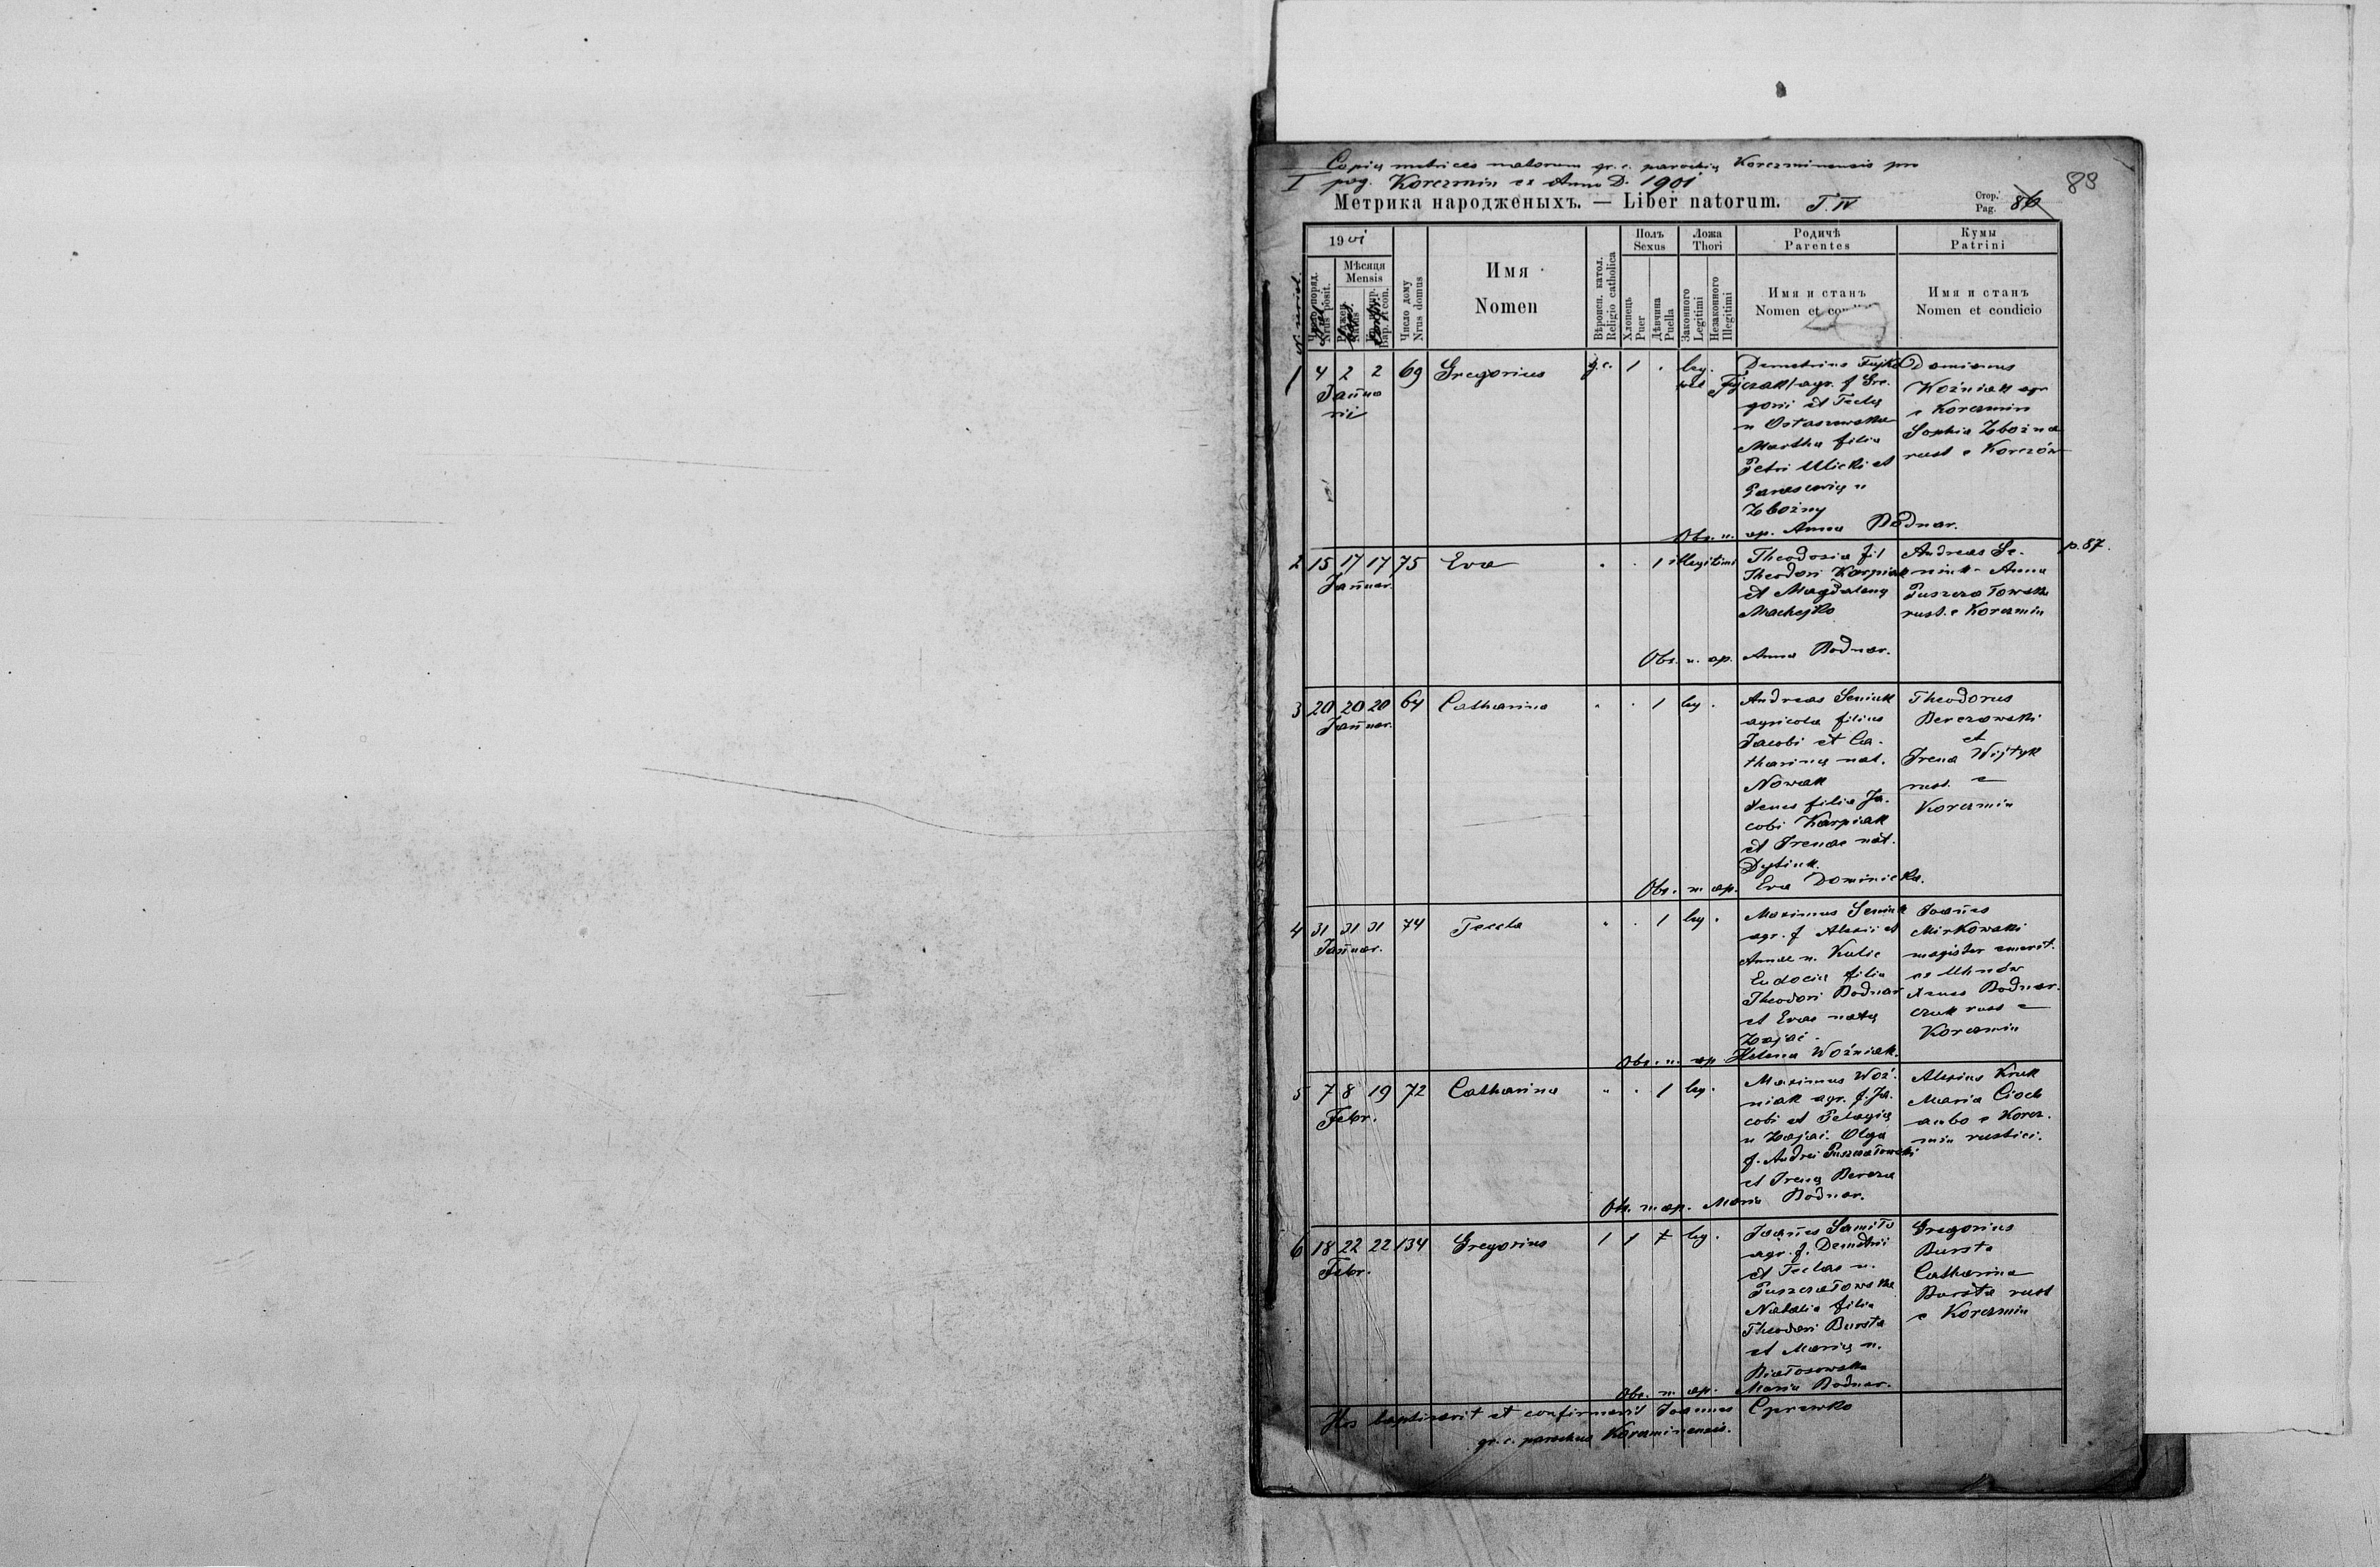 Copia metrices natorum gr. c. parochiæ Korczminensis pro
I pag. Korczmin ex Anno D. 1901
88
Метрика народженыхъ. — Liber natorum. T. IV
Стор. Pag. 86
1901
Мѣсяця Mensis
Число дому Nrus domus
Имя Nomen
Вѣроисп. катол. Religio catholica
Полъ Sexus
Хлопець Puer
Дѣвчина Puella
Ложа Thori
Законного Legitimi
Незаконного Illegitimi
Родичѣ Parentes
Имя и станъ
Nomen et condicio
Кумы Patrini
Имя и станъ
Nomen et condicio
1 4 2 2 69 Gregorius g.c. 1 . leg.
Januarii
Demetrius Fujko
vel Fijczak agr. f Gre-
gorii et Teclæ
n Ostaszewska
Martha filia
Petri Ulicki et
Parasceviæ n
Zbożny
Damianus
Woźniak agr
e Korczmin
Sophia Zbożna
rust e Korczów
Obs. n. ap. Anna Bodnar.
2 15 17 17 75 Eva " . 1 illegitimi
Januar.
Theodosia fil
Theodori Karpiak
et Magdalenæ
Machejko
Andreas Se-
niuk Anna
Puszczałowska
rust. e Korczmin
p. 87.
Obs. n. ap. Anna Bodnar.
3 20 20 20 64 Catharina " . 1 leg.
Januar.
Andreas Seniuk
agricola filius
Jacobi et Ca-
tharinæ nat.
Nowak
Xenes filia Ja-
cobi Karpiak
et Irenae nat.
Theodorus
Berezowski
et
Irena Wijtyk
rust. e
Korczmin
Obs. n ap. Eva Dominicka.
4 31 31 31 74 Tecla " . 1 leg.
Januar.
Maximus Seniuk
agr. f Alexii et
Annae n. Kulic
Eudocia filia
Theodori Bodnar
et Evae natæ
Zając.
Joannes
Mirkowski
magister emerit.
ex Uhnów
Xenes Bodnar-
czuk rust e
Korczmin
Obs. n. ap. Helena Woźniak.
5 7 8 19 72 Catharina " . 1 leg.
Febr.
Maximus Woź-
niak agr. f. Ja-
cobi et Pelagiæ
n Zając. Olga
f. Andrei Puszczałowski
et Irenæ Bereza
Alexius Kruk
Maria Cioch
ambo e Korcz-
min rustici.
Obs. n ap. Maria Bodnar.
6 18 22 22 134 Gregorius 1 1 leg.
Febr.
Joannes Samiło
agr. f. Demetrii
et Teclae n.
Puszczałowska
Natalia filia
Theodori Bursta
et Mariæ n.
Białosowska
Gregorius
Bursta
Catharina
Bursta rust
e Korczmin
Obs. n. ap. Maria Bodnar.
Hos baptizavit et confirmavit Joannes Cprewko
gr. c. parochus Korczminensis.